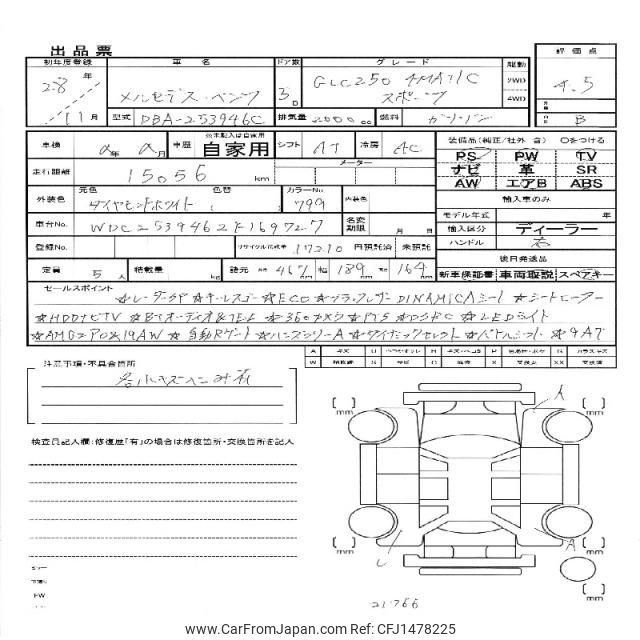 出品票
初年度登録 車名 ドア数 グレード 駆動 評価点
28年 メルセデス・ベンツ 3D GLC250 4MATIC スポーツ 2WD 4WD 4.5
11月 型式 DBA-253946C 排気量 2000cc 燃料 ガソリン B
車検 年 月 車歴 ※未記入は自家用 自家用 シフト AT 冷房 AC
装備品(純正/社外 含) ○をつける
PS PW TV
走行距離 15056 km メーター
ナビ 革 SR
AW エアB ABS
外装色 元色 ダイヤモンドホワイト 色替 ( カラーNo. 799 内装色
輸入車のみ
モデル年式 年
車台No. WDC2539462F169727 名変期限 月 日
輸入区分 ディーラー
登録No. リサイクル預託金 17210 円預託済 未預託
ハンドル 右
後日発送品
定員 5人 積載量 kg 諸元 467 幅 189 高 164
新車保証書 車両取説 スペアキー
セールスポイント
☆レーダーSP ☆キーレスゴー ☆ECO ☆ブラックレザーDINAMICAシート ☆シートヒーター
☆HDDナビTV ☆BTオーディオ&TEL ☆360°カメラ ☆PTS ☆DSRC ☆LEDライト
☆AMG 19AW ☆自動Rゲート ☆ハンズフリーA ☆ダイナミックセレクト ☆パドルシフト ☆9AT
注意事項・不具合箇所
検査員記入欄:修復歴「有」の場合は修復箇所・交換箇所を記入
[ ] mm
[ ] mm
A
[ ] mm
[ ] mm
A
21.766
www.CarFromJapan.com | CFJ1478225